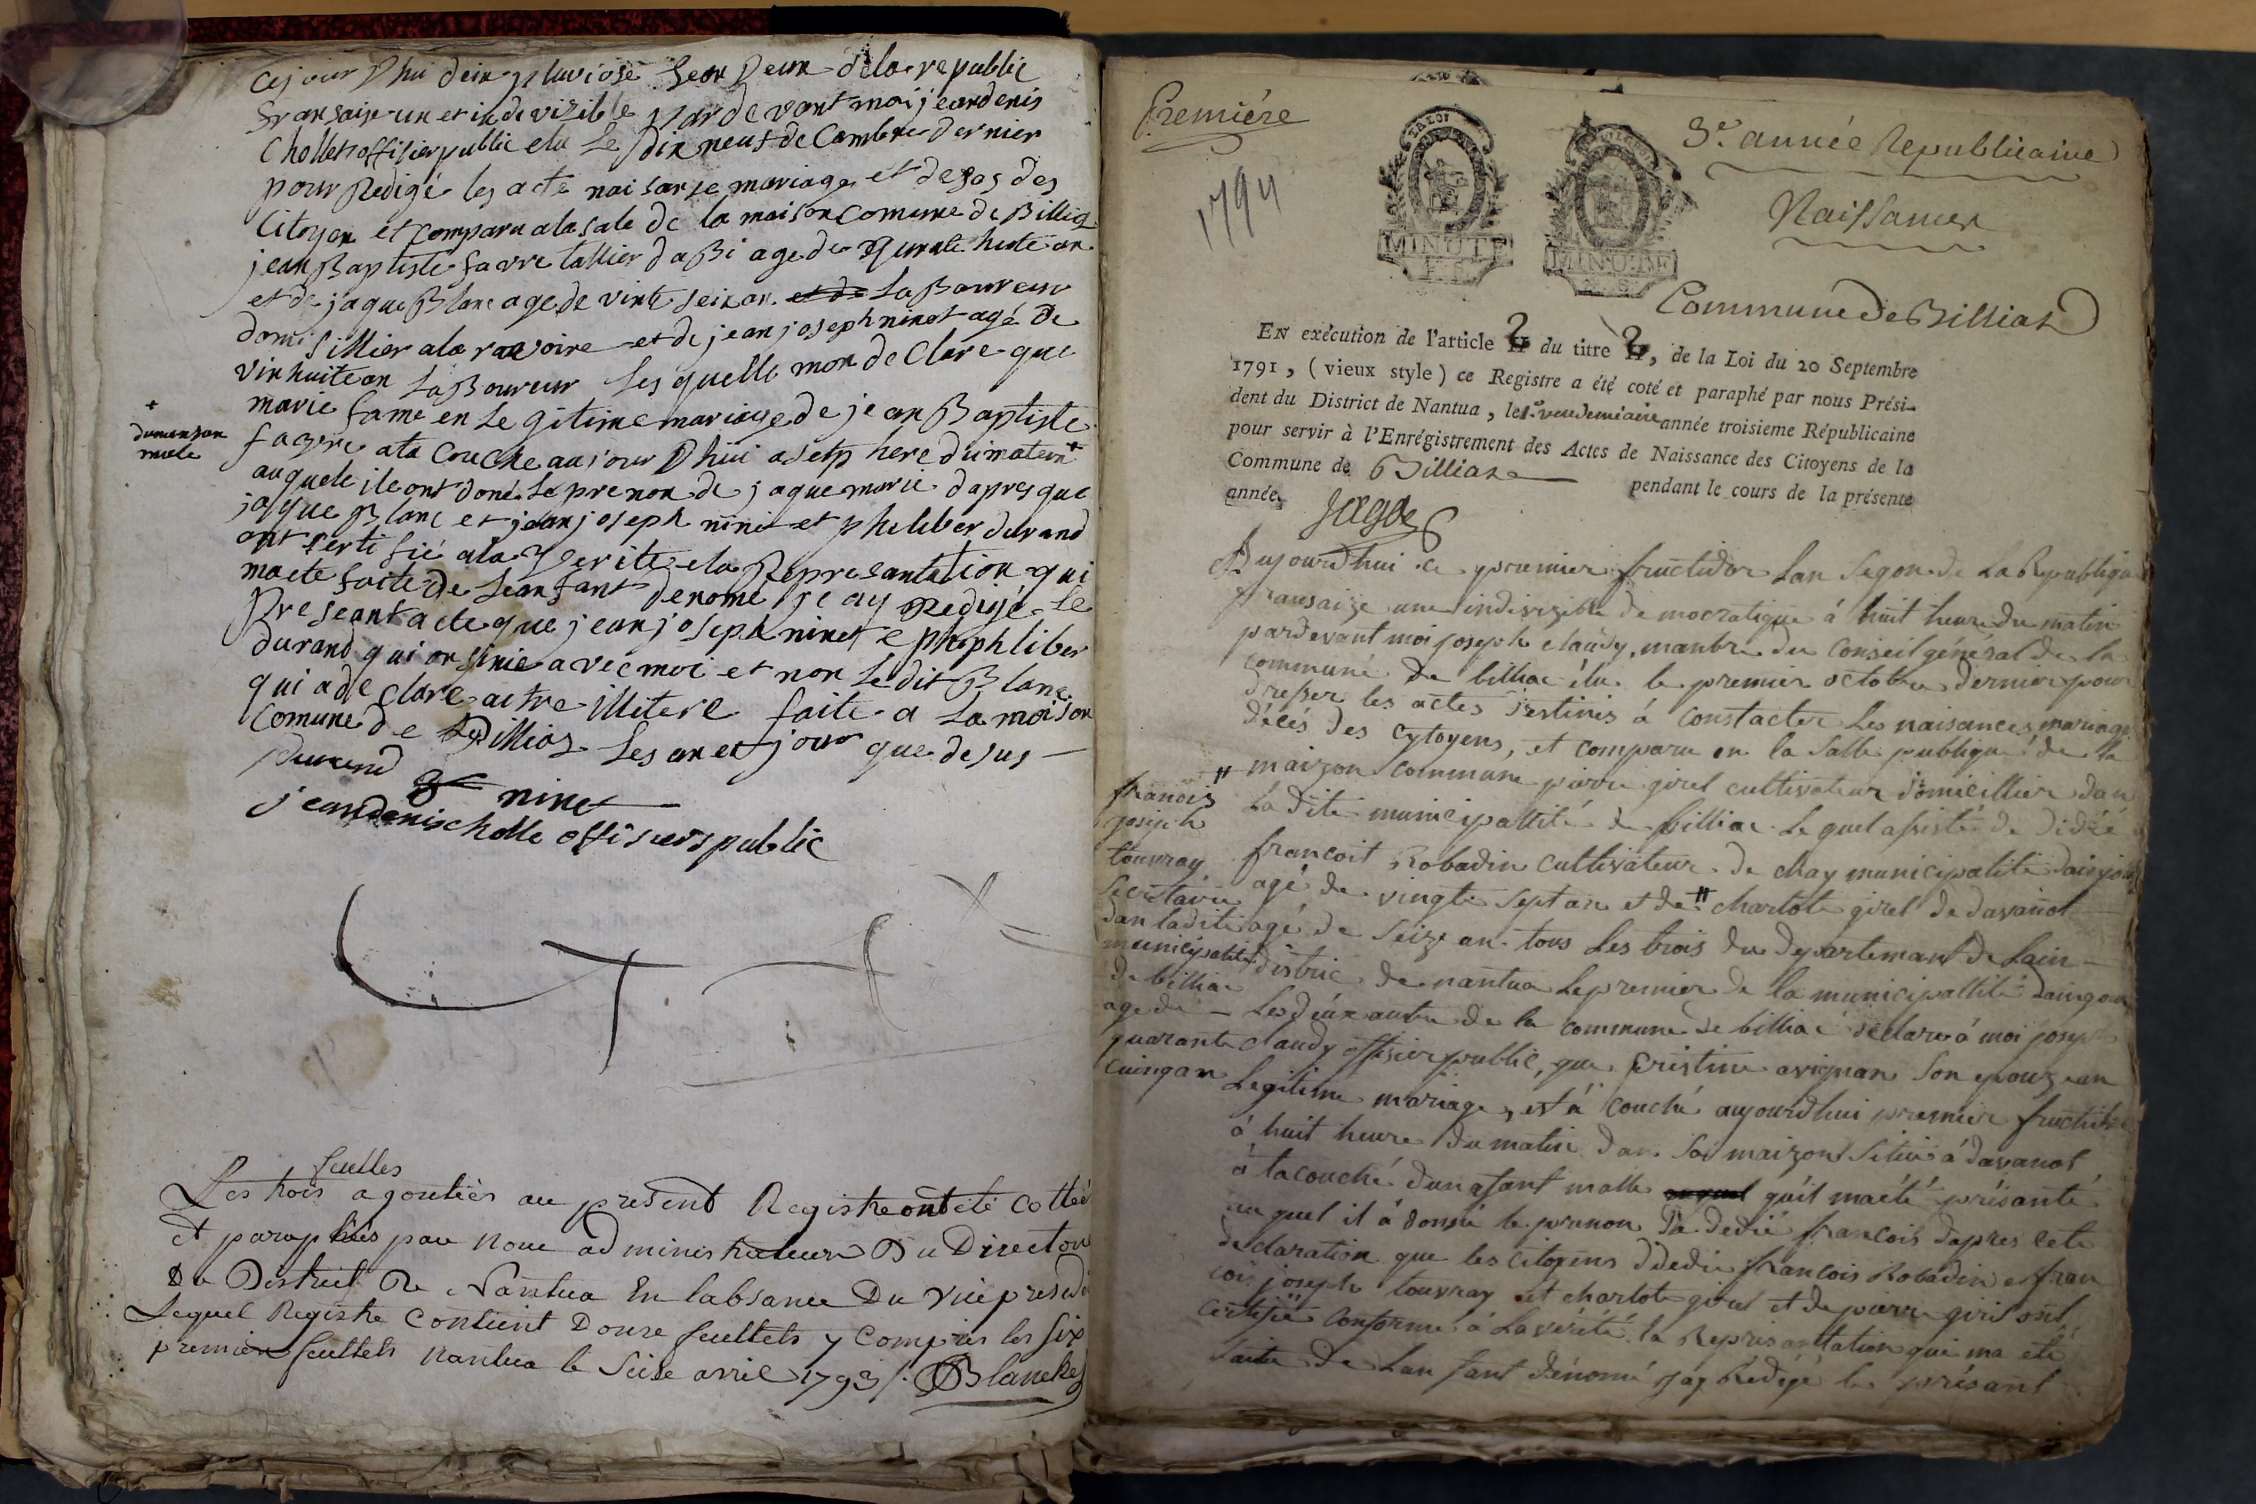 Cejour Dhui deix pluviose Lean Deux dela republic
fransaise un et indevizible par de vant moi jeandenis
Chollet offisier public elu Le dix neuf de Cambre dernier
pour Redigé les acte naisanse mariage et desas des
Citoyen et comparu alasale de la maison comune de Billiaz
jean Baptiste favre tallier daBi age de quarante huite an
et de jaque Blanc age de vinte seix an et de LaBoureur
domisillier ala ravoire et de jean joseph ninet agé de
vinhuite an LaBoureur Lesquelle mon de Clare que
marie fame en Le gitime mariage de jean Baptiste
favre ata Couche aujour Dhui a setp here dumatein +
+
dunansan
male
auquele ile ont doné Le prenon de jaque marie dapres que
jaque Blanc et jean joseph ninet et pheliber durand
ont serti fié ala verite ela Represantation qui
maete faite de Leanfant denomé je ay Redigé Le
preseant acte que jean joseph ninet e pheliber
durand qui on sinie avec moi et non Le dit Blanc
qui a de Clare aitre illitere faite a La maison
comune de Billiaz Les an et jour que desus
durand ninet
jeandenis cholle offisiers public
feulles
Les trois agoutiér au présent Registre ont été cottée
et paraphés par nous administrateur Du Directoir
Du District De Nantua En labsance Du Vice presid
Lequel Registre Contient Douze feuillets y Compris les six
premiers feuillets nantua le Seize avril 1793 /. Blanchet
Premiére
1794
3.e année Republicaine
Naissances
MINUTE
MINUTE
Commune de Billiat
EN exécution de l'article 2 du titre 2, de la Loi du 20 Septembre
1791, (vieux style) ce Registre a été coté et paraphé par nous Prési-
dent du District de Nantua, le 1.er vendemiaire année troisieme Républicaine
pour servir à l'Enrégistrement des Actes de Naissance des Citoyens de la
Commune de Billiaz pendant le cours de la présente
année, Jagot
Aujourdhui ce premier fructidor Lan segon de La Republique
fransaize une indivizible démocratique á huit heure du matin
pardevant moi joseph claudy, manbre du conseil général de la
commune de billiac élu le premier octobre dernier pour
dresser les actes destinés á constacter Les naisances mariage
décés des cytoyens, et comparu en la salle publique de la
maizon commune pierre girel cultivateur domicillier dan
La dite municipallité de billiac Lequel asisté de didié
francoit Robadin cultivateur de chay municipalité
agé de vingte sept an et de " charlote girel de davanot
agé de seize an tous Les trois du departemant de Lain
distric de nantua Le premier de la municipallité
Les deux autre de la commune de billiac déclaré á moi joseph
claudy offisier public, que cristine avignan son epouze an
Legitime mariage, est á couché aujourdhui premier fructidor
á huit heure du matin dans sa maizon sitiuée á davanot
á tacouché dun afant malle quil maété présanté
auquel il á donné le prenon da dedié francois dapres cete
declaration que les citoyens ddedié francois Robadin et fran
cois joseph touvray et charlote girel et de pierre girel ont
certifié conforme á La vérité la Represanttation qui ma été
faite de Lanfant dénomé jáy Redigé le présant
" francois
joseph
touvray
secrétaire
dan ladite
municipalité
de billiac
agé de
quarante
cuinq an